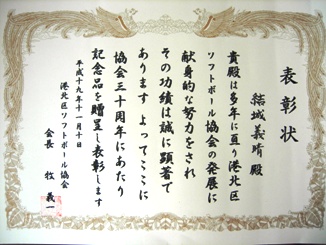 表彰状
結城義晴殿
貴殿は多年に亘り港北区
ソフトボール協会の発展に
献身的な努力をされ
その功績は誠に顕著で
あります よってここに
協会三十周年にあたり
記念品を贈呈し表彰します
平成十九年十一月十日
港北区ソフトボール協会
会長 牧義一